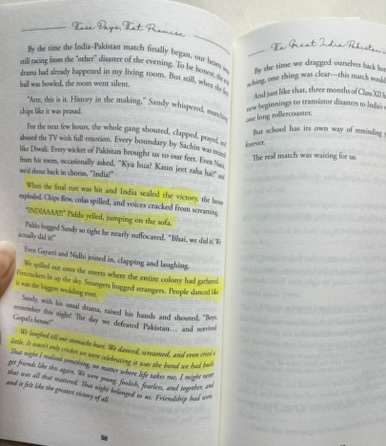 Those Days, That Promise
By the time the India-Pakistan match finally began, our hearts were
still racing from the "other" disaster of the evening. To be honest, the real
drama had already happened in my living room. But still, when the first
ball was bowled, the room went silent.
"Arre, this is it. History in the making," Sandy whispered, munching
chips like it was prasad.
For the next few hours, the whole gang shouted, clapped, prayed, and
abused the TV with full emotion. Every boundary by Sachin was treated
like Diwali. Every wicket of Pakistan brought us to our feet. Even Nanu
from his room, occasionally asked, "Kya hua? Kaun jeet raha hai?" and
we'd shout back in chorus, "India!"
When the final run was hit and India sealed the victory, the house
exploded. Chips flew, colas spilled, and voices cracked from screaming.
"INDIAAAA!!" Pakhi yelled, jumping on the sofa.
Pakhi hugged Sandy so tight he nearly suffocated. "Bhai, we did it! We
actually did it!"
Even Gayatri and Nidhi joined in, clapping and laughing.
We spilled out onto the streets where the entire colony had gathered.
Firecrackers lit up the sky. Strangers hugged strangers. People danced like
it was the biggest wedding ever.
Sandy, with his usual drama, raised his hands and shouted, "Boys,
remember this night! The day we defeated Pakistan... and survived
Gopal's house!"
We laughed till our stomachs hurt. We danced, screamed, and even cried a
little. It wasn't only cricket we were celebrating it was the bond we had built.
That night I realised something, no matter where life takes me, I might never
get friends like this again. We were young, foolish, fearless, and together, and
that was all that mattered. That night belonged to us. Friendship had won,
and it felt like the greatest victory of all.
88
The Great India Pakistan
By the time we dragged ourselves back
thing, one thing was clear—this match would
And just like that, three months of Class XII
new beginnings to transistor disasters to India's
one long rollercoaster.
But school has its own way of reminding
forever.
The real match was waiting for us.